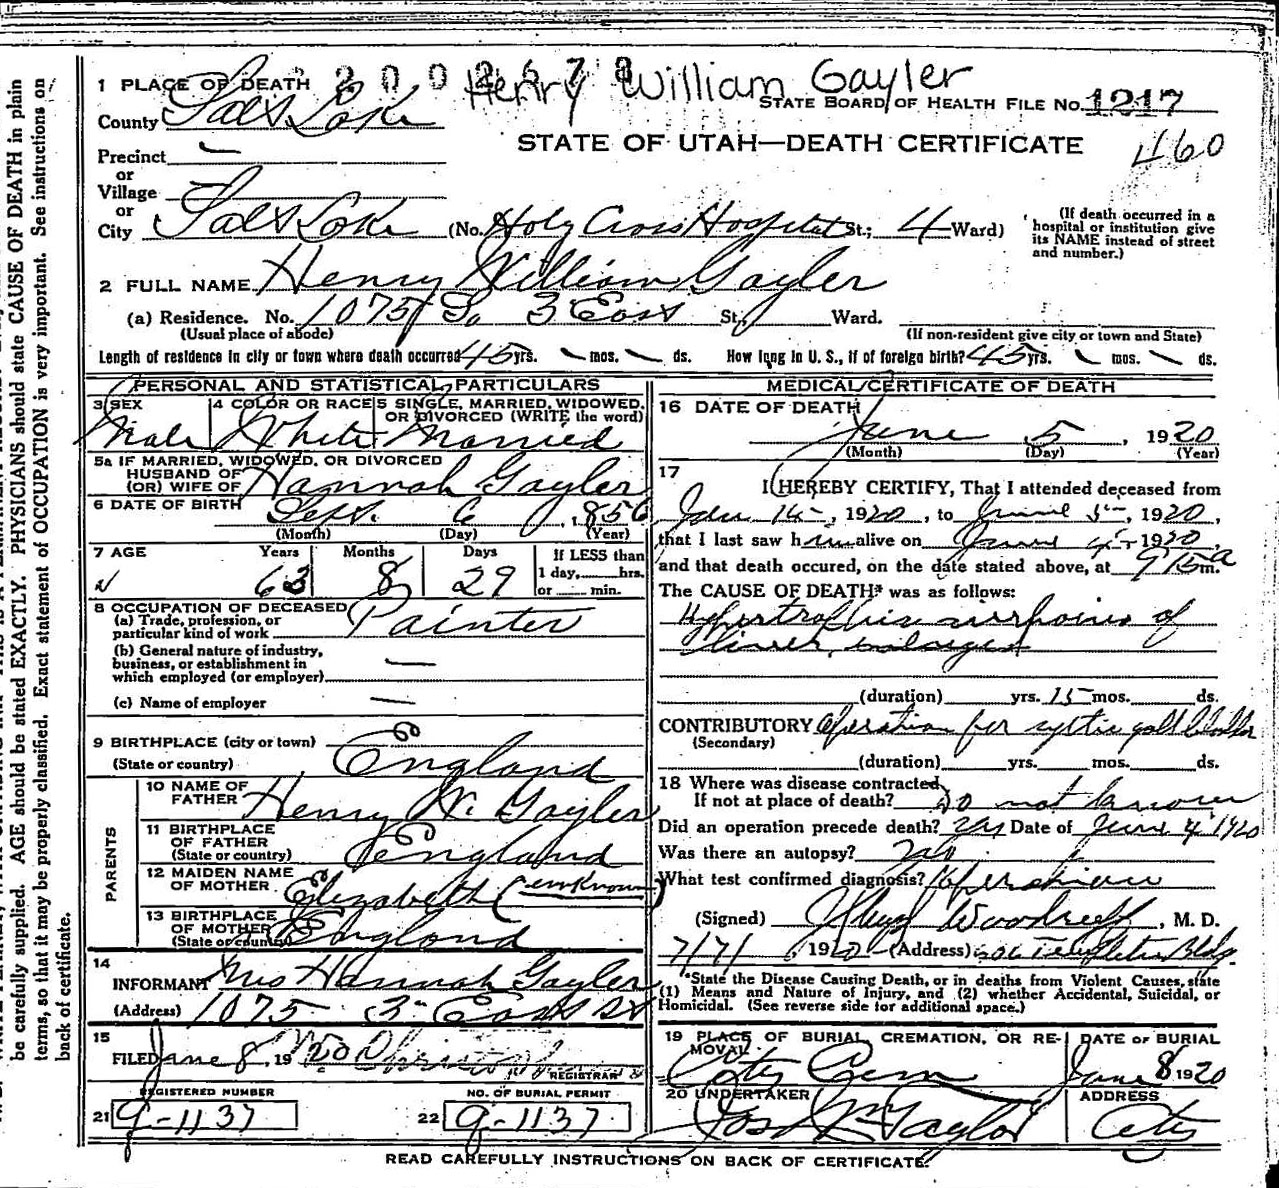 Henry William Gayler
1 PLACE OF DEATH
STATE BOARD OF HEALTH FILE No. 1217
County Salt Lake
STATE OF UTAH—DEATH CERTIFICATE 460
Precinct —
or
Village
or
City Salt Lake (No. Holy Cross Hospital St.; 4 Ward)
(If death occurred in a hospital or institution give its NAME instead of street and number.)
2 FULL NAME Henry William Gayler
(a) Residence. No. 1075 So 3 East St., Ward.
(Usual place of abode) (If non-resident give city or town and State)
Length of residence in city or town where death occurred 45 yrs. mos. ds. How long in U. S., if of foreign birth? 45 yrs. mos. ds.
PERSONAL AND STATISTICAL PARTICULARS
3 SEX 4 COLOR OR RACE 5 SINGLE, MARRIED, WIDOWED, OR DIVORCED (WRITE the word)
Male White Married
5a IF MARRIED, WIDOWED, OR DIVORCED
HUSBAND OF
(OR) WIFE OF Hannah Gayler
6 DATE OF BIRTH Sept. 6, 1856
(Month) (Day) (Year)
7 AGE Years Months Days If LESS than
63 8 29 1 day, hrs.
or min.
8 OCCUPATION OF DECEASED
(a) Trade, profession, or
particular kind of work Painter
(b) General nature of industry,
business, or establishment in
which employed (or employer)
(c) Name of employer —
9 BIRTHPLACE (city or town)
(State or country) England
PARENTS
10 NAME OF
FATHER Henry W. Gayler
11 BIRTHPLACE
OF FATHER
(State or country) England
12 MAIDEN NAME
OF MOTHER Elizabeth (unknown)
13 BIRTHPLACE
OF MOTHER
(State or country) England
14
INFORMANT Mrs Hannah Gayler
(Address) 1075 3" East St
15
FILED June 8, 1920
REGISTRAR
REGISTERED NUMBER NO. OF BURIAL PERMIT
21 g-1137 22 g-1137
MEDICAL CERTIFICATE OF DEATH
16 DATE OF DEATH
June 5, 1920
(Month) (Day) (Year)
17
I HEREBY CERTIFY, That I attended deceased from
1920, to June 5, 1920,
that I last saw him alive on June 4, 1920,
and that death occured, on the date stated above, at 9 15 a m.
The CAUSE OF DEATH* was as follows:
Hypertrophic cirrhosis of
liver, enlarged
(duration) yrs. 15 mos. ds.
CONTRIBUTORY Operation for cystic gall bladder
(Secondary)
(duration) yrs. mos. ds.
18 Where was disease contracted
If not at place of death? Do not know
Did an operation precede death? yes Date of June 4 1920
Was there an autopsy? no
What test confirmed diagnosis? Operation
(Signed) Woodruff, M. D.
1920 (Address) Templeton Bldg.
*State the Disease Causing Death, or in deaths from Violent Causes, state
(1) Means and Nature of Injury, and (2) whether Accidental, Suicidal, or
Homicidal. (See reverse side for additional space.)
19 PLACE OF BURIAL, CREMATION, OR RE- DATE OF BURIAL
MOVAL
City Cem June 8 1920
20 UNDERTAKER ADDRESS
Jos Wm Taylor City
READ CAREFULLY INSTRUCTIONS ON BACK OF CERTIFICATE.
be carefully supplied. AGE should be stated EXACTLY. PHYSICIANS should state CAUSE OF DEATH in plain
terms, so that it may be properly classified. Exact statement of OCCUPATION is very important. See instructions on
back of certificate.